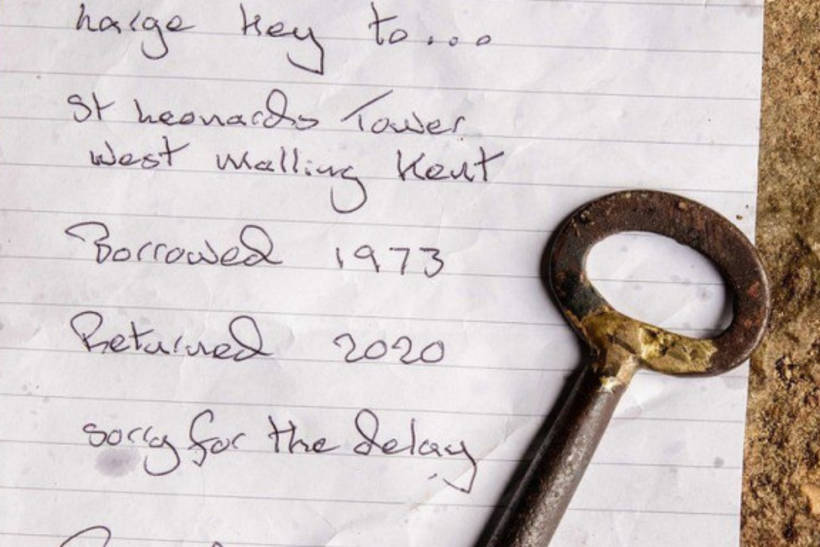 Large Key to...
St Leonards Tower
West Malling Kent
Borrowed 1973
Returned 2020
sorry for the delay